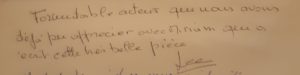 Formidable acteur que nous avons
déjà pu apprécier avec Miriam qui a
écrit cette très belle pièce